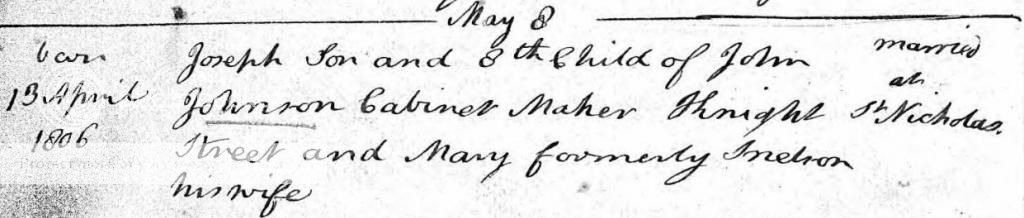 May 8
born Joseph Son and 8th Child of John married
at
13 April Johnson Cabinet Maker Knight St Nicholas.
1806 Street and Mary formerly Snelson
his wife